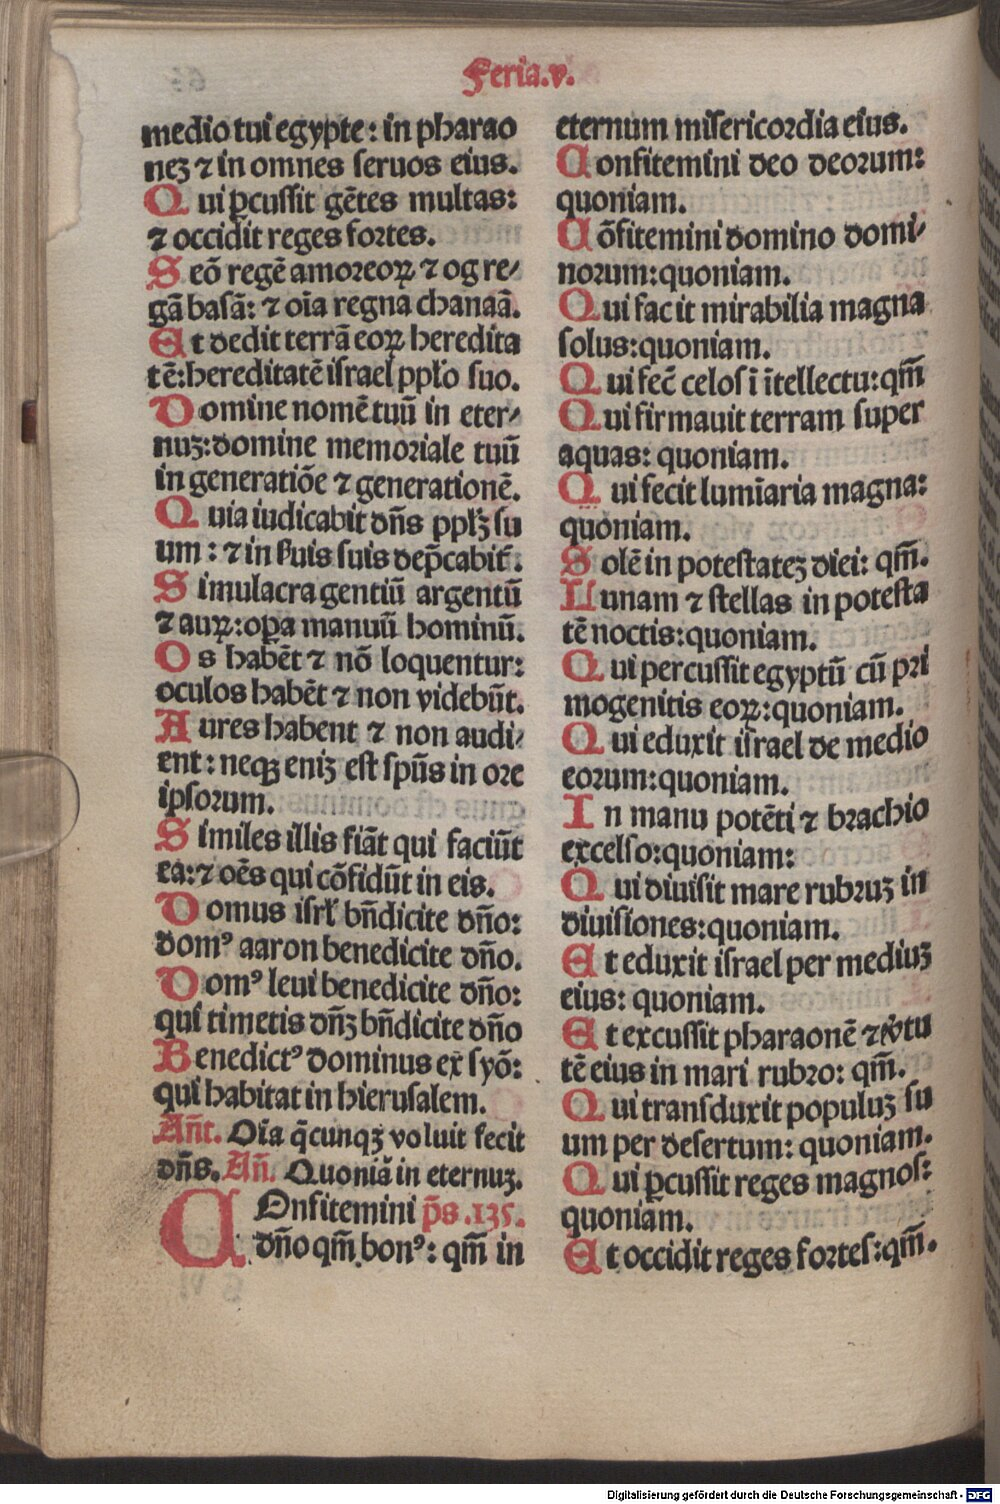 Feria.v.
medio tui egypte: in pharao
neꝫ ⁊ in omnes seruos eius.
Qui ꝑcussit gẽtes multas:
⁊ occidit reges fortes.
Seõ regẽ amoreoꝝ ⁊ og re⸗
gã basã: ⁊ oĩa regna chanaã.
Et dedit terrã eoꝝ heredita
tẽ: hereditatẽ israel pplo suo.
Domine nomẽ tuũ in eter⸗
nuꝫ: domine memoriale tuũ
in generatiõe ⁊ generationẽ.
Quia iudicabit dñs pplꝫ su
um: ⁊ in ẜuis suis dep̃cabit̃.
Simulacra gentiũ argentũ
⁊ auꝝ: oꝑa manuũ hominũ.
Os habẽt ⁊ nõ loquentur:
oculos habẽt ⁊ non videbũt.
Aures habent ⁊ non audi⸗
ent: neqꝫ eniꝫ est spũs in ore
ipsorum.
Similes illis fiãt qui faciũt
ea: ⁊ oẽs qui cõfidũt in eis.
Domus isrł bñdicite dño:
domꝰ aaron benedicite dño.
Domꝰ leui benedicite dño:
qui timetis dñꝫ bñdicite dño
Benedictꝰ dominus ex̃ syõ:
qui habitat in hierusalem.
Añt. Oĩa q̃cunqꝫ voluit fecit
dñs. Añ. Quoniã in eternuꝫ.
COnfitemini p̃s .135.
dño qm̃ bonꝰ: qm̃ in
eternum misericordia eius.
Confitemini deo deorum:
quoniam.
Cõfitemini domino domi⸗
norum: quoniam.
Qui facit mirabilia magna
solus: quoniam.
Qui fec̃ celos ĩ ĩtellectu: qm̃
Qui firmauit terram super
aquas: quoniam.
Qui fecit lumĩaria magna:
quoniam.
Solẽ in potestateꝫ diei: qm̃.
Lunam ⁊ stellas in potesta
tẽ noctis: quoniam.
Qui percussit egyptũ cũ pri
mogenitis eoꝝ: quoniam.
Qui eduxit israel de medio
eorum: quoniam.
In manu potẽti ⁊ brachio
excelso: quoniam:
Qui diuisit mare rubruꝫ in
diuisiones: quoniam.
Et eduxit israel per mediuꝫ
eius: quoniam.
Et excussit pharaonẽ ⁊ ṽtu
tẽ eius in mari rubro: qm̃.
Qui transduxit populuꝫ su
um per desertum: quoniam.
Qui ꝑcussit reges magnos:
quoniam.
Et occidit reges fortes: qm̃.
Digitalisierung gefördert durch die Deutsche Forschungsgemeinschaft - DFG